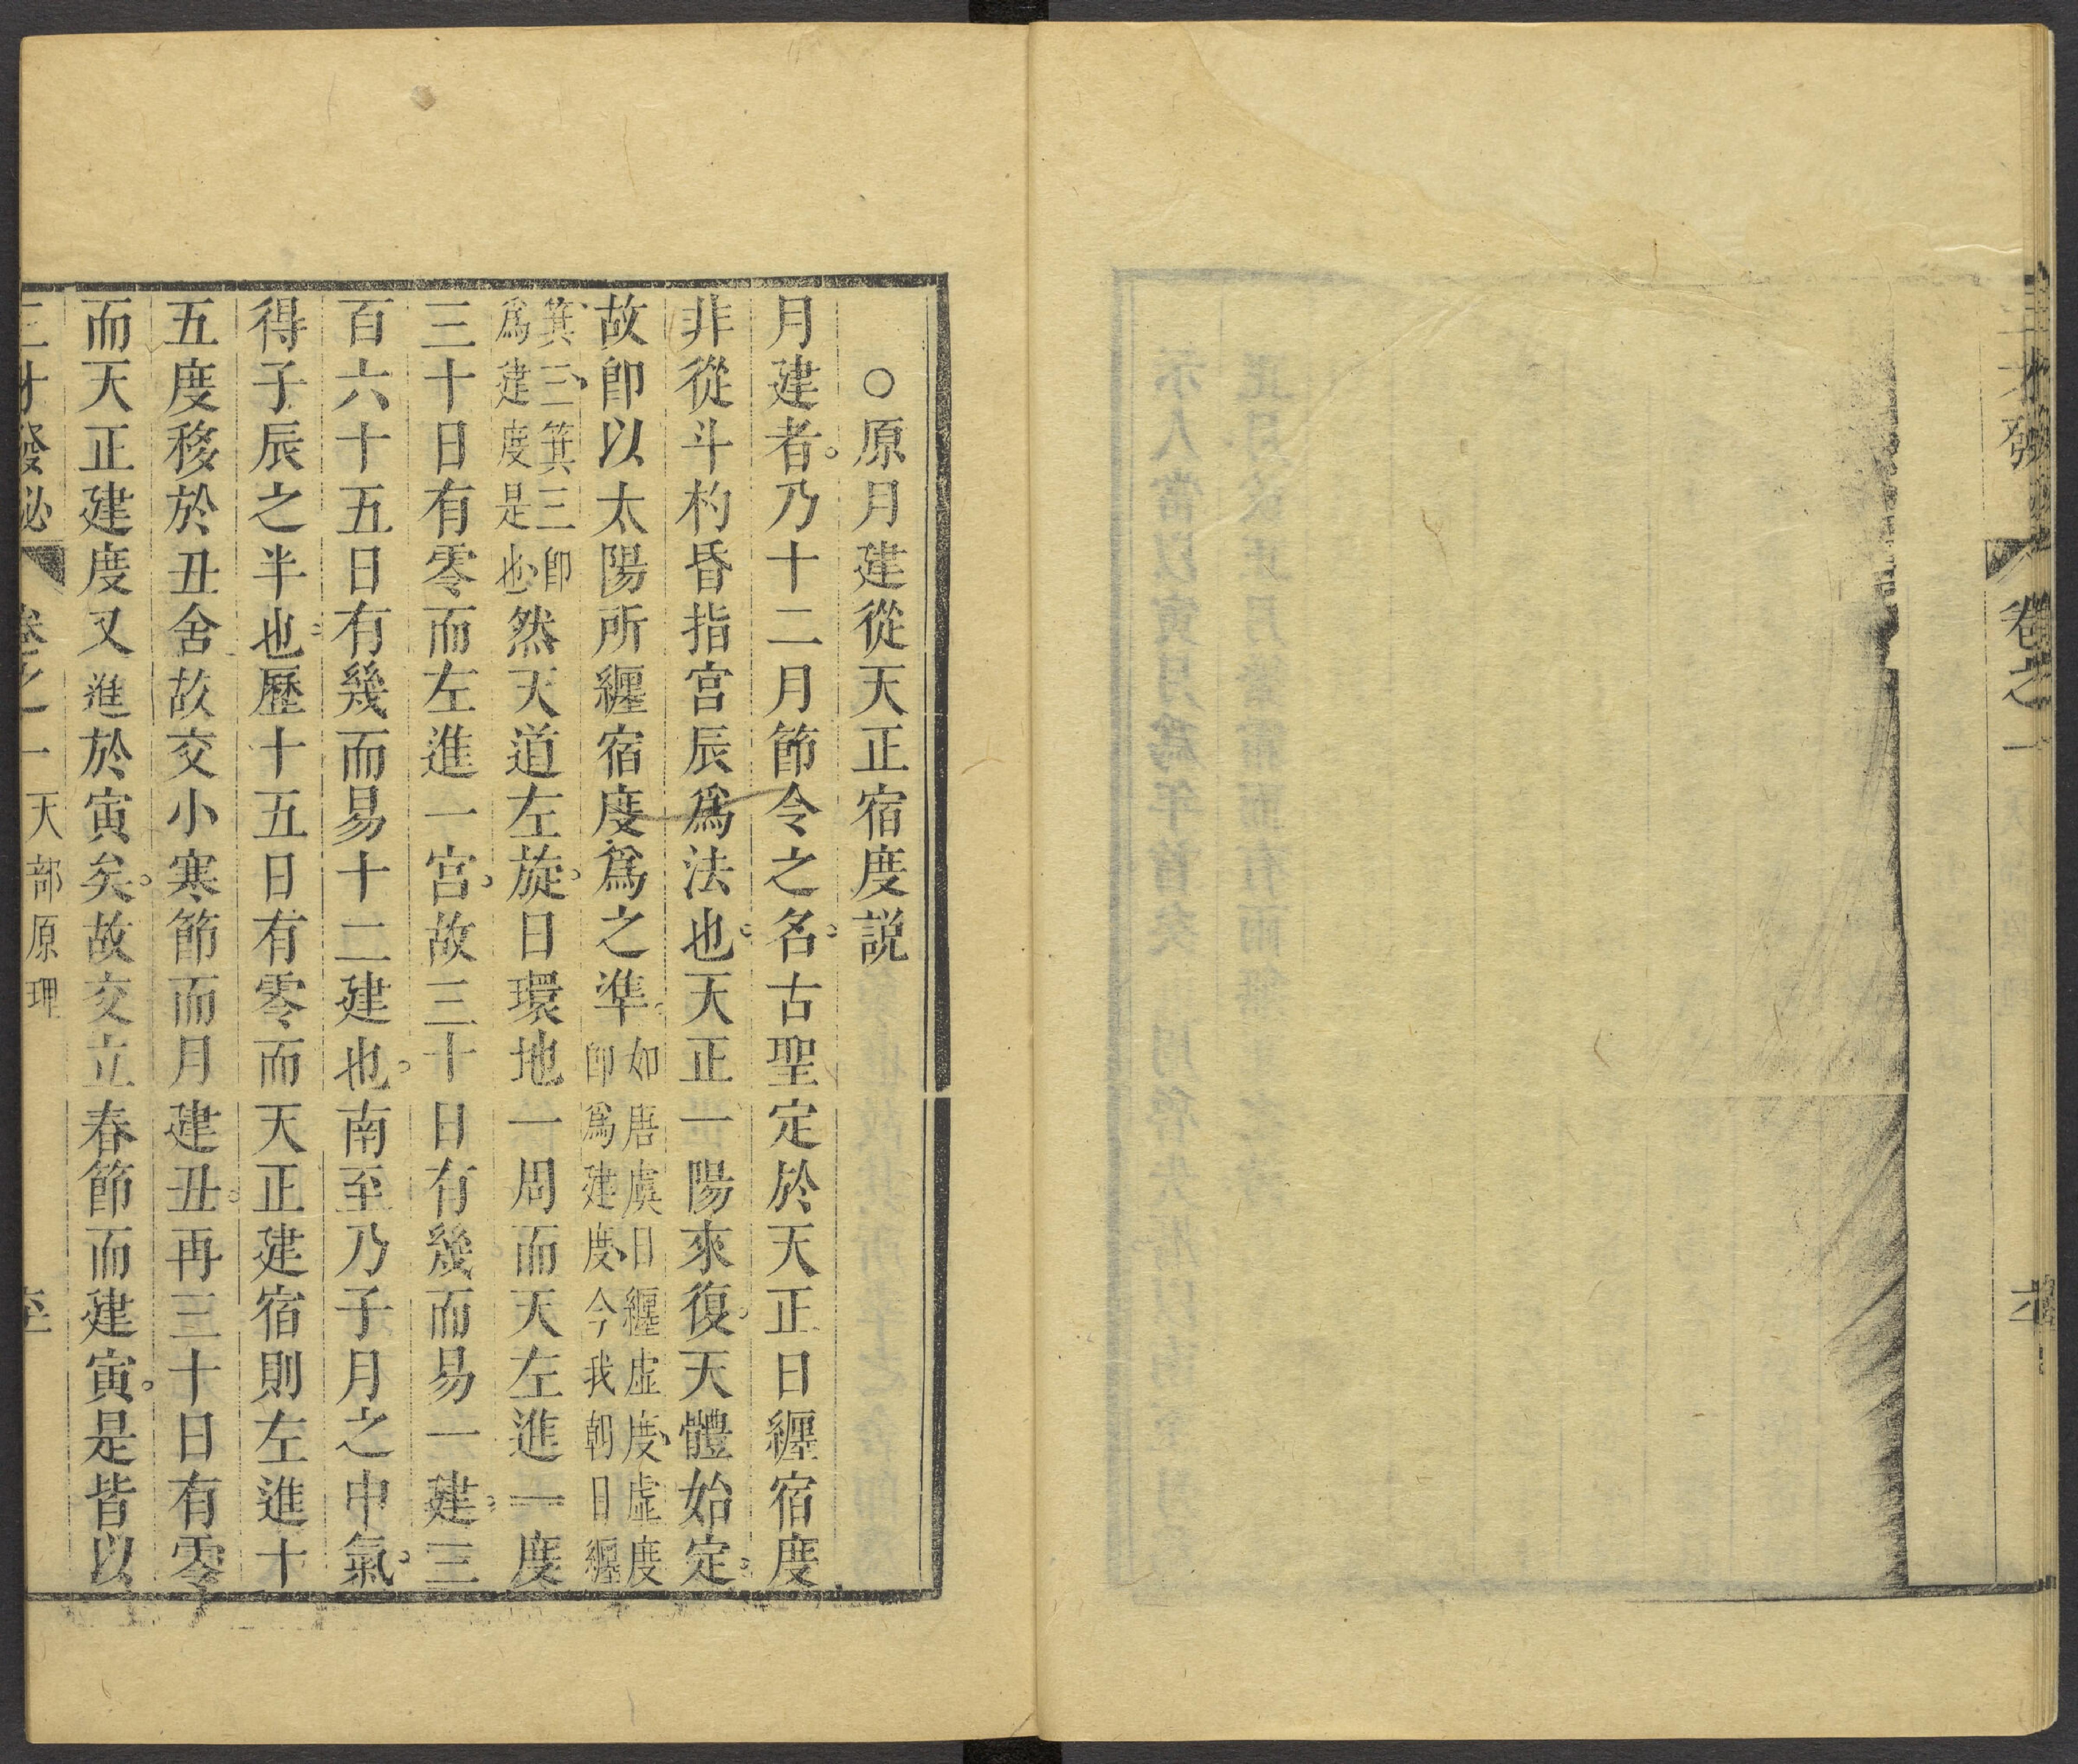 三才發
卷之一
○原月建從天正宿度説
月建者。乃十二月節令之名。古聖定於天正日纏宿度
非從斗杓昏指宫辰爲法也。天正一陽來復。天體始定。
故卽以太陽所纏宿度爲之準。如唐虞日纏虛度、虛度
卽爲建度、今我朝日纏
箕三、箕三卽
爲建度是也、然天道左旋。日環地一周而天左進一度
三十日有零而左進一宫。故三十日有幾而易一建。三
百六十五日有幾而易十二建也。南至乃子月之中氣。
得子辰之半也。歷十五日有零而天正建宿則左進十
五度移於丑舍故交小寒節而月建丑。再三十日有零
而天正建度又進於寅矣。故交立春節而建寅。是皆以
三才發祕
卷之一
天部原理